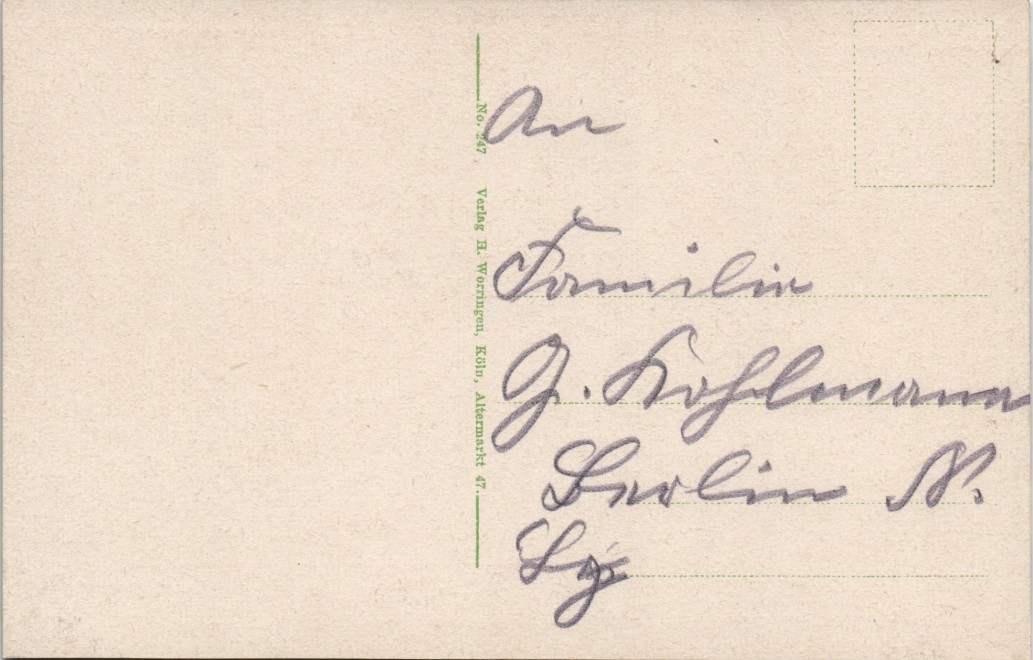 No. 247 Verlag H. Worringen, Köln, Altermarkt 47.
An
Familie
G. Kohlmann
Berlin N.